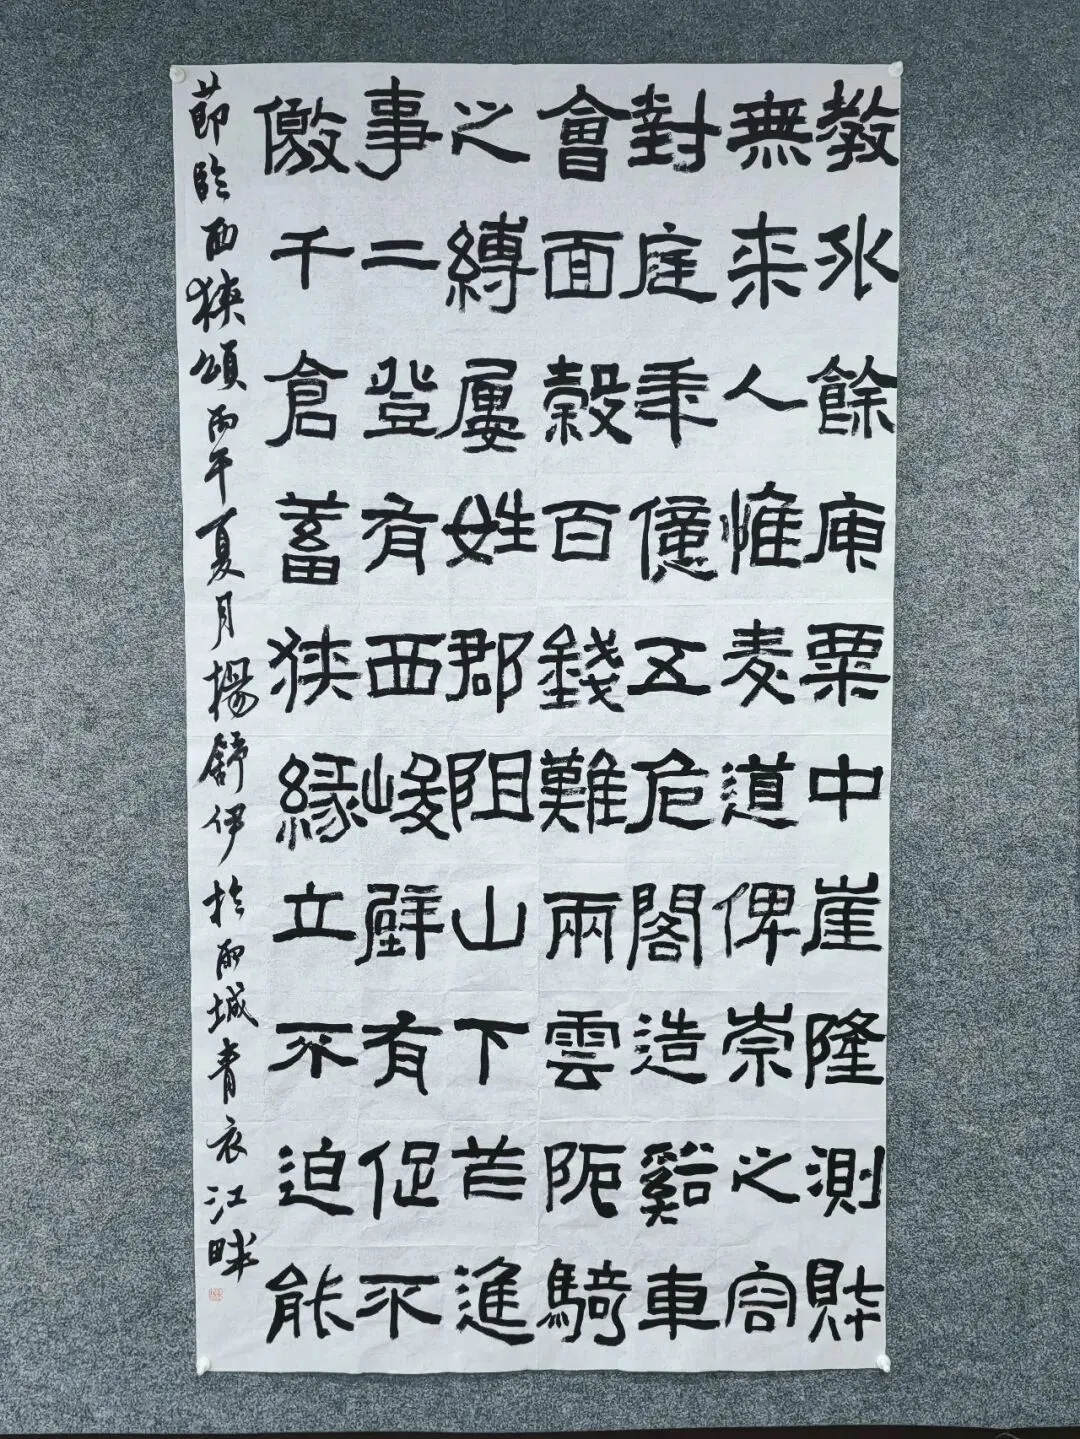 教無對會之事儌
外来庭面縛二千
餘人年穀屢登倉
庾惟億百姓有蓄
粟麦五錢郡西狹
中道危難阻峻緣
崖俾閣兩山壁立
隆崇造雲下有不
測之谿阨笮促迫
財容車騎進不能
節臨西狹頌丙午夏月楊舒伊於雨城青衣江畔